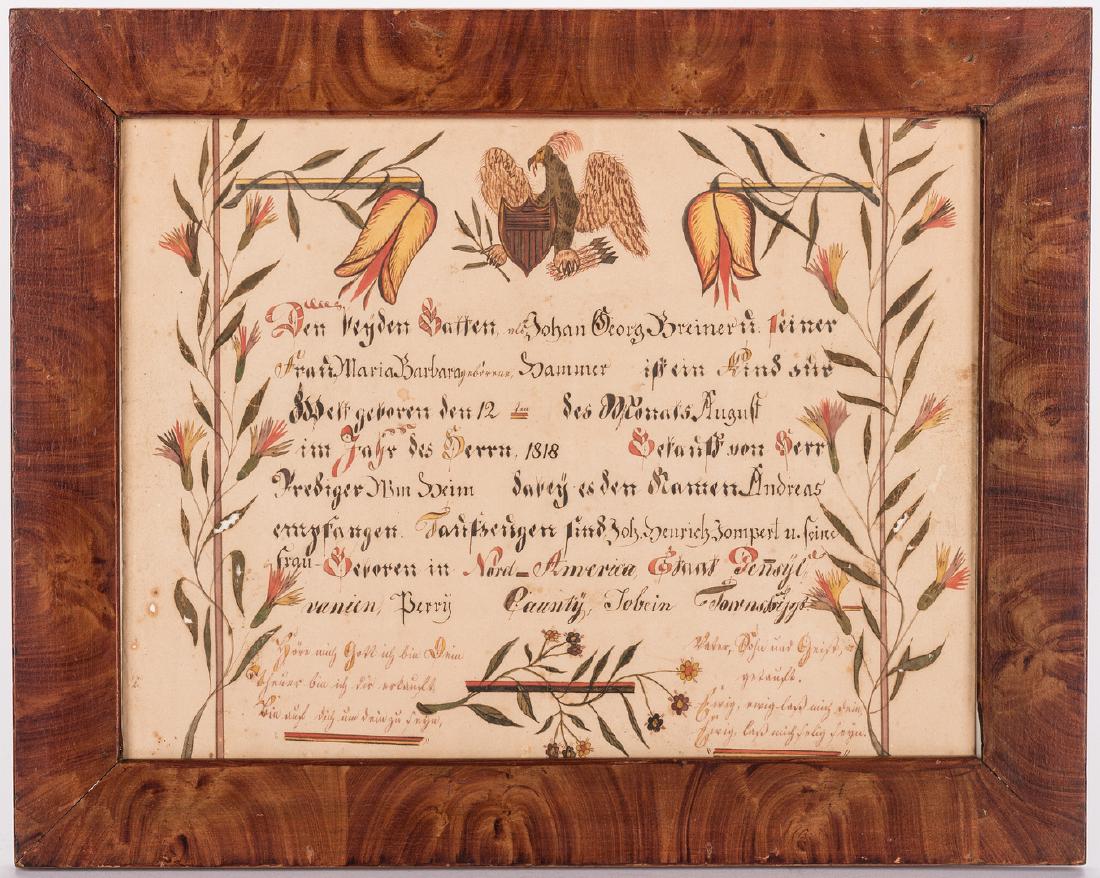 Den beyden Gatten, als Johan Georg Breiner u. seiner
Frau Maria Barbara geborene, Hammer ist ein Kind zur
Welt geboren den 12 ten des Monats August
im Jahr des Herrn, 1818 Getauft von Herr
Prediger Wm Heim dabey es den Namen Andreas
empfangen. Taufzeugen sind Joh. Henrich Zompert u. seine
Frau. Geboren in Nord-America, Staat Pensyl
vanien, Perry Caunty, Tobein Townshyp
Höre mich Gott ich bin Dein
theuer bin ich dir erkauft
Bin auf dich um dein zu seyn,
Vater, Sohn und Geist,
getauft.
Ewig, ewig laß mich dein,
Ewig, laß mich selig seyn.